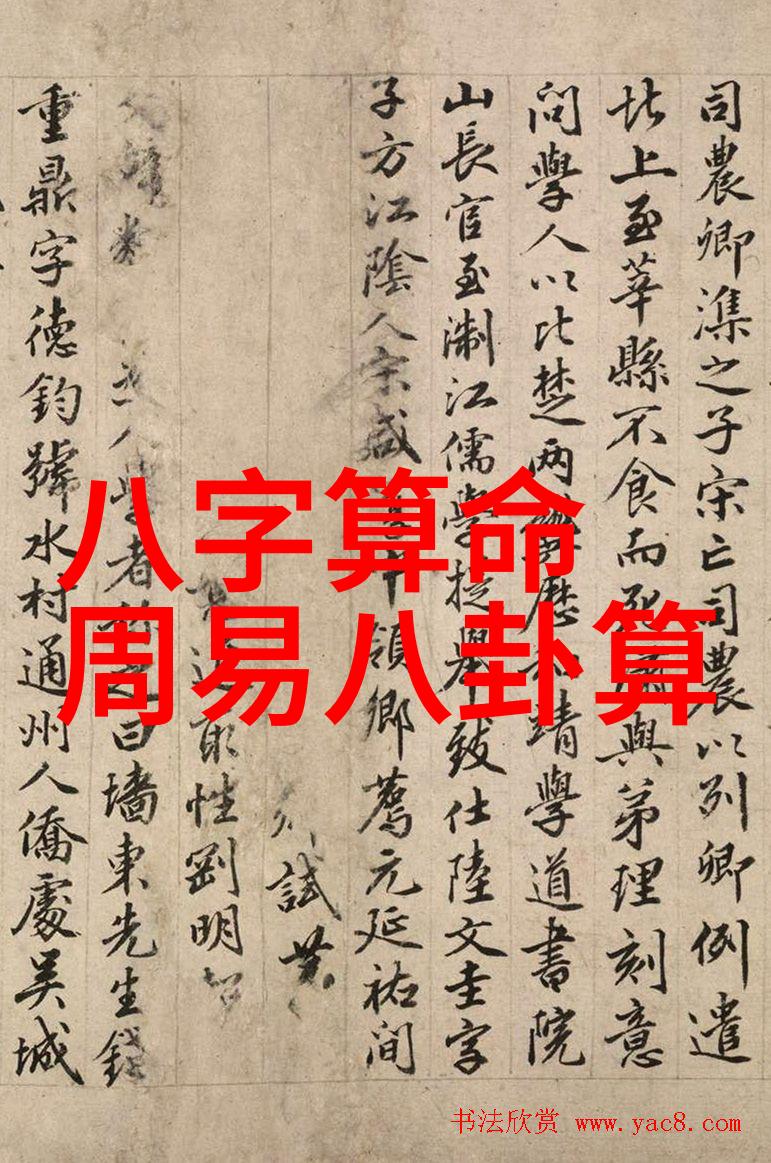 八字算命
周易八卦算
司農卿之子宋亡司農以列卿例遣
北上至莘縣不食而死與弟理刻意
問學人以比楚两歷靖學道書院
山長官至淛江儒學提舉致仕陸文圭字
子方江陰人宋咸中領鄉薦元延祐間
試
性劉明
人學者之曰墻東先生錢
重鼎字德鈞號水村通州人僑處吳城
书法欣赏 www.yac8.com